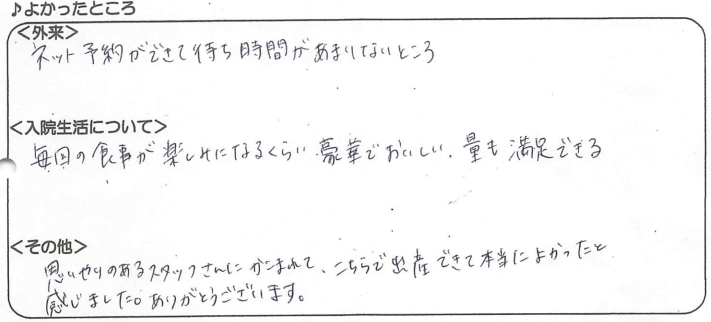 ♪よかったところ
<外来>
ネット予約ができて待ち時間があまりないところ
<入院生活について>
毎回の食事が楽しみになるくらい豪華でおいしい、量も満足できる
<その他>
思いやりのあるスタッフさんにかこまれて、こちらで出産できて本当によかったと
感じました。ありがとうございます。